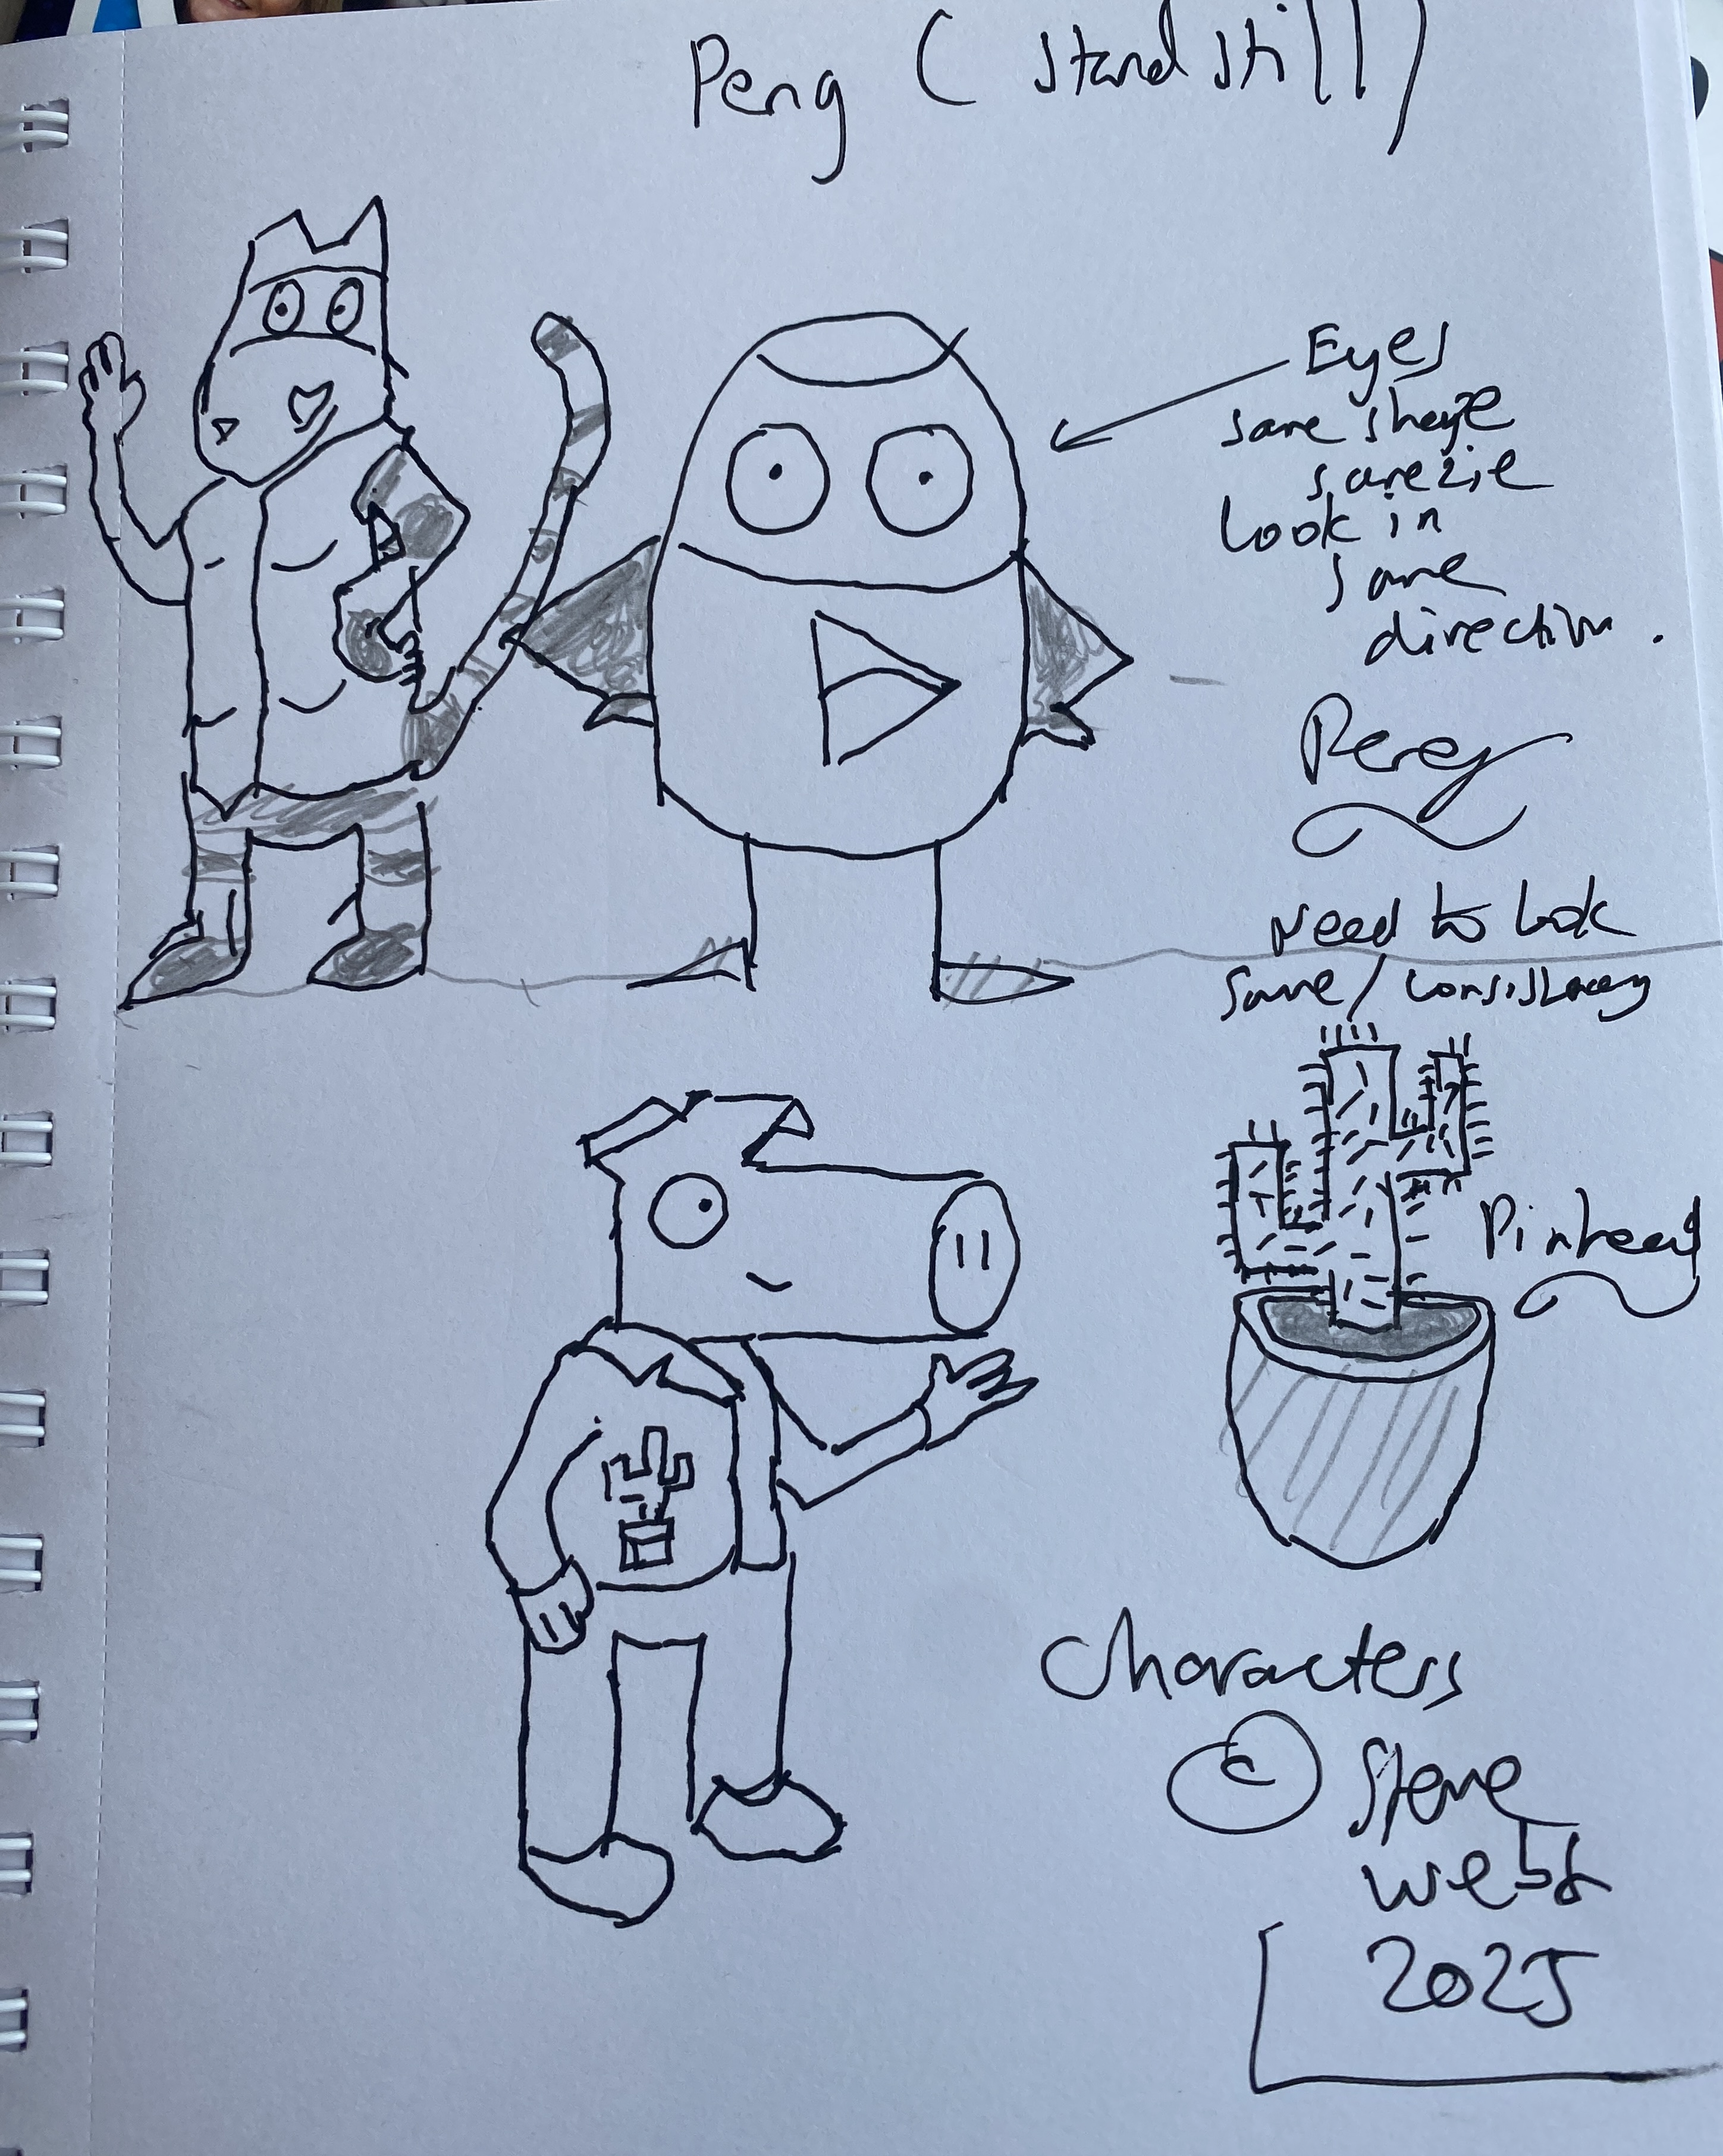 Peng (stand still)
Eyes
same shape
same zie
Look in
same
direction.
Need to look
same / consistancy
Pinhead
Characters
© Steve
Webb
2025